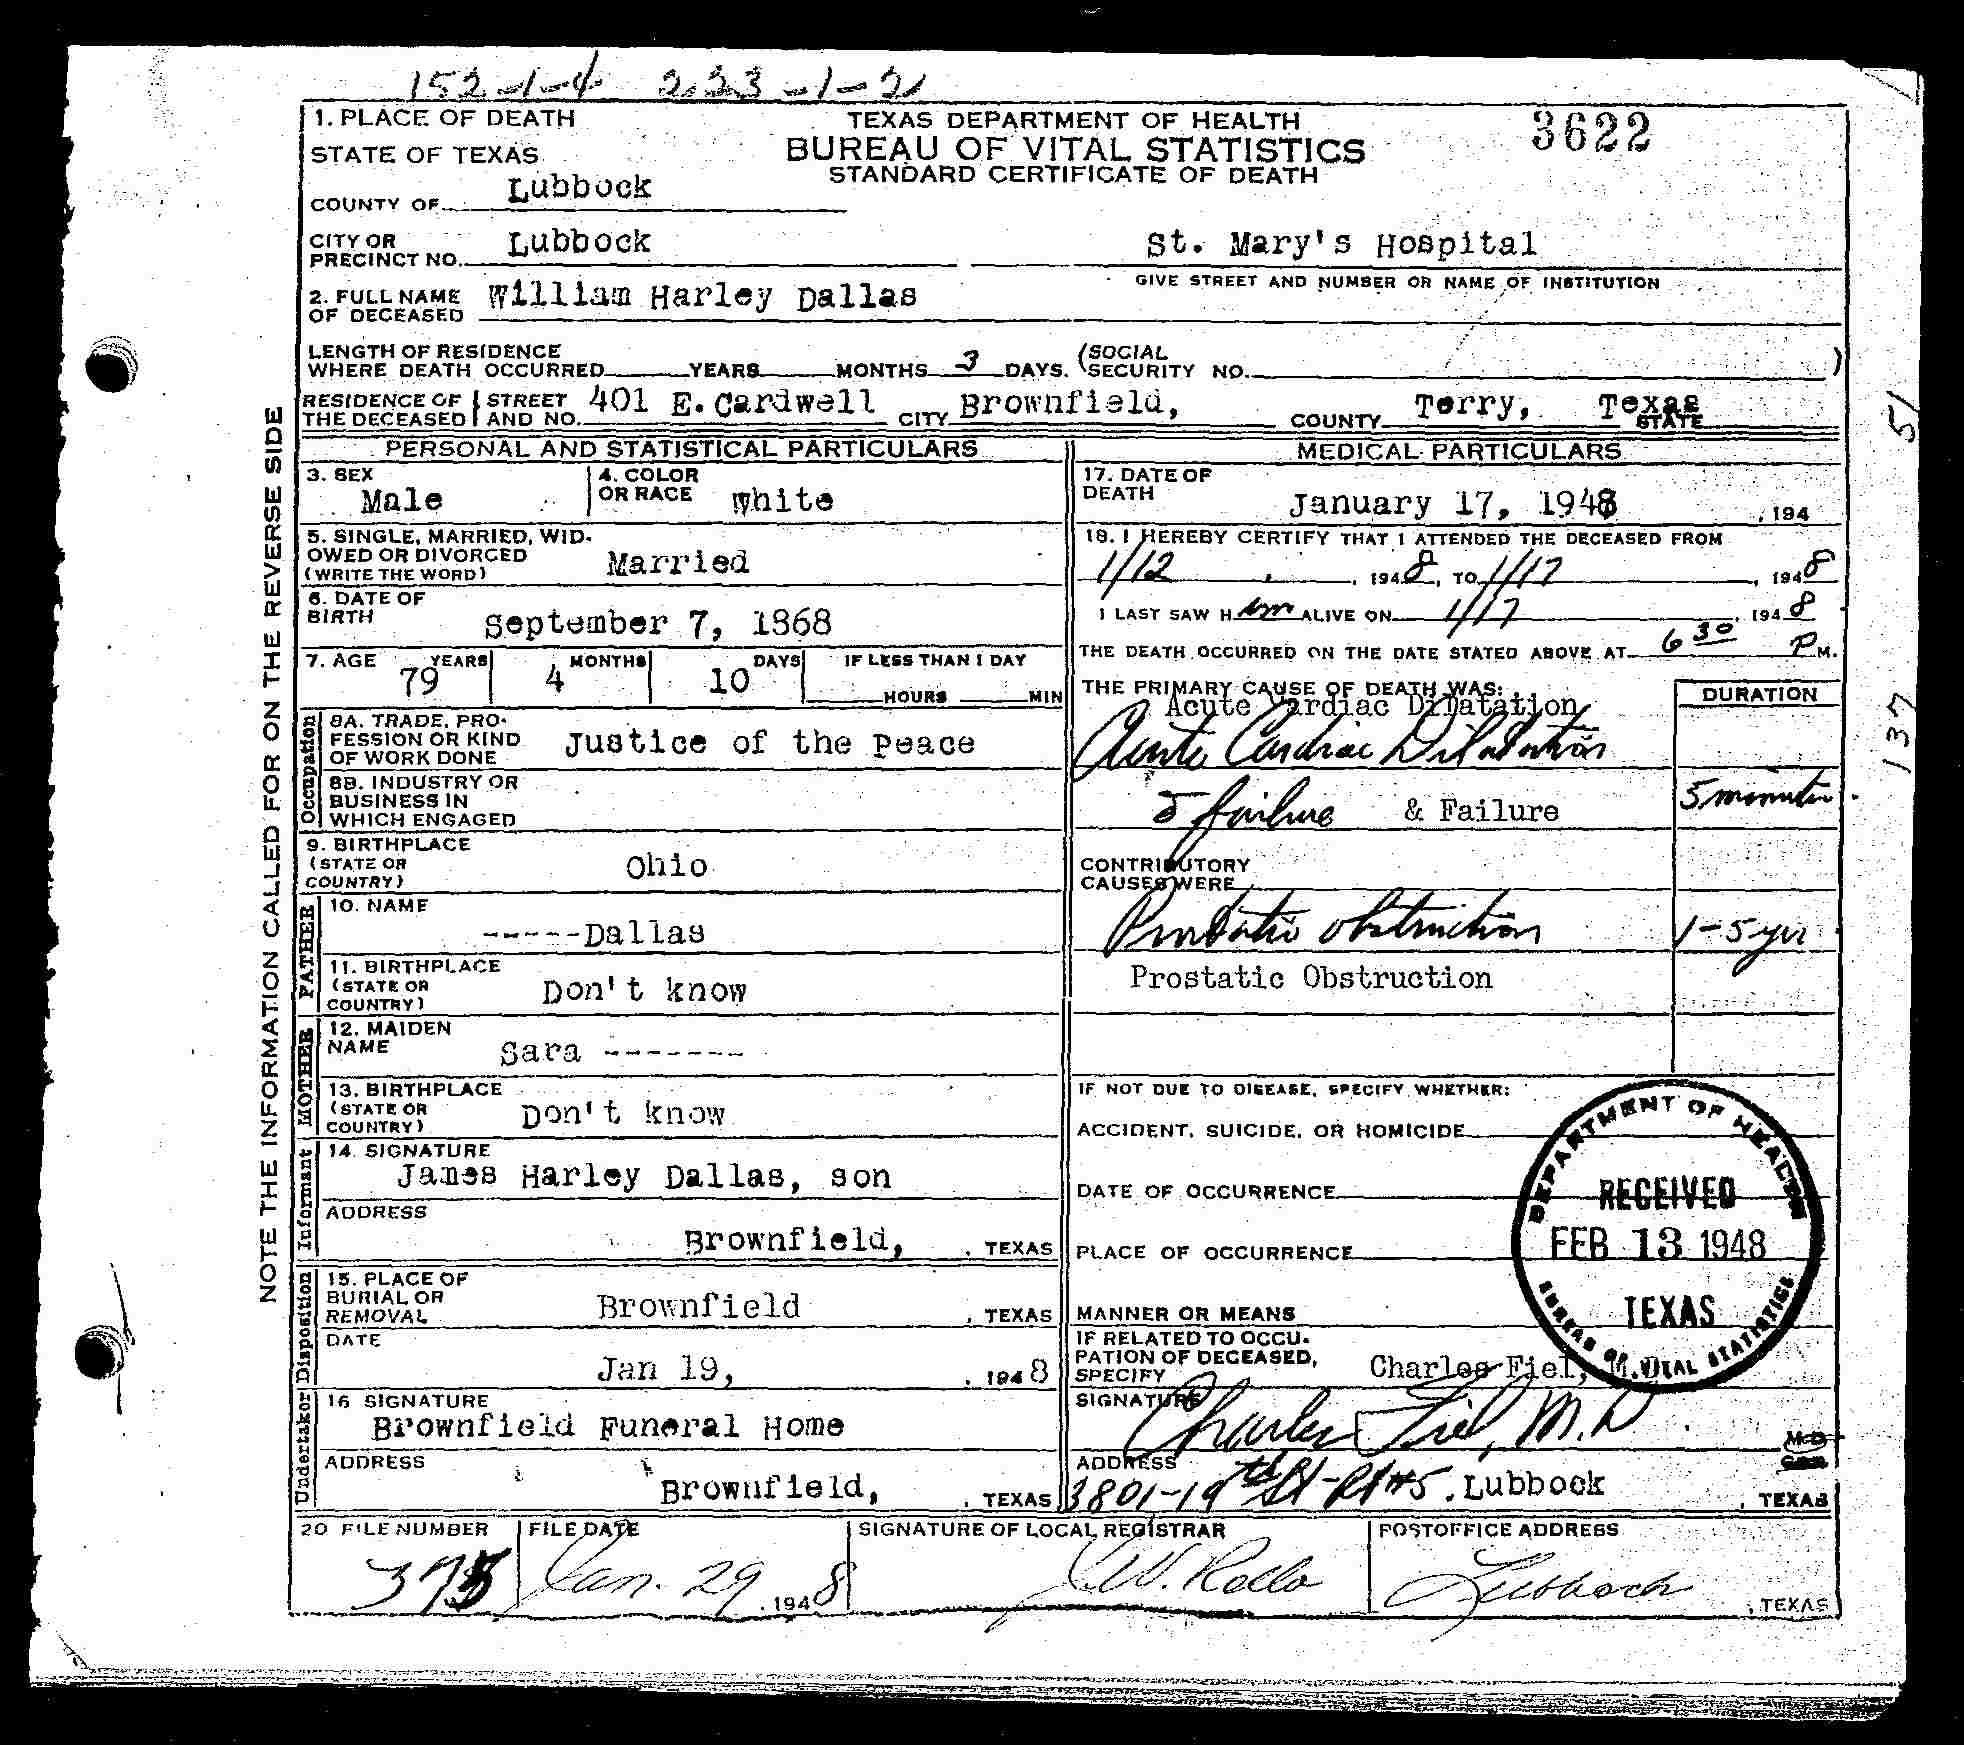 152-1-4 223-1-2
1. PLACE OF DEATH
STATE OF TEXAS
TEXAS DEPARTMENT OF HEALTH
BUREAU OF VITAL STATISTICS
STANDARD CERTIFICATE OF DEATH
3622
COUNTY OF Lubbock
CITY OR PRECINCT NO. Lubbock
St. Mary's Hospital
GIVE STREET AND NUMBER OR NAME OF INSTITUTION
2. FULL NAME OF DECEASED William Harley Dallas
LENGTH OF RESIDENCE
WHERE DEATH OCCURRED YEARS MONTHS 3 DAYS. (SOCIAL SECURITY NO. )
RESIDENCE OF THE DECEASED STREET AND NO. 401 E. Cardwell CITY Brownfield, COUNTY Terry, Texas STATE
PERSONAL AND STATISTICAL PARTICULARS
3. SEX Male
4. COLOR OR RACE White
5. SINGLE, MARRIED, WIDOWED OR DIVORCED (WRITE THE WORD) Married
6. DATE OF BIRTH September 7, 1868
7. AGE 79 YEARS 4 MONTHS 10 DAYS IF LESS THAN 1 DAY HOURS MIN
Occupation
8A. TRADE, PROFESSION OR KIND OF WORK DONE Justice of the Peace
8B. INDUSTRY OR BUSINESS IN WHICH ENGAGED
9. BIRTHPLACE (STATE OR COUNTRY) Ohio
FATHER
10. NAME -----Dallas
11. BIRTHPLACE (STATE OR COUNTRY) Don't know
MOTHER
12. MAIDEN NAME Sara --------
13. BIRTHPLACE (STATE OR COUNTRY) Don't know
Informant
14. SIGNATURE
James Harley Dallas, son
ADDRESS
Brownfield, , TEXAS
Disposition
15. PLACE OF BURIAL OR REMOVAL Brownfield , TEXAS
DATE
Jan 19, , 1948
Undertaker
16 SIGNATURE
Brownfield Funeral Home
ADDRESS
Brownfield, , TEXAS
MEDICAL PARTICULARS
17. DATE OF DEATH January 17, 1948 , 194
18. I HEREBY CERTIFY THAT I ATTENDED THE DECEASED FROM
1/12 , 1948, TO 1/17 , 1948
I LAST SAW HIM ALIVE ON 1/17 , 1948
THE DEATH OCCURRED ON THE DATE STATED ABOVE AT 6 30 P M.
THE PRIMARY CAUSE OF DEATH WAS: DURATION
Acute Cardiac Dilatation
Acute Cardiac Dilatation
failure & Failure 5 minutes
CONTRIBUTORY CAUSES WERE
Prostatic obstruction 1-5 yrs
Prostatic Obstruction
IF NOT DUE TO DISEASE, SPECIFY WHETHER:
ACCIDENT, SUICIDE, OR HOMICIDE
DATE OF OCCURRENCE
PLACE OF OCCURRENCE
MANNER OR MEANS
IF RELATED TO OCCUPATION OF DECEASED, SPECIFY
Charles Fiel, M.D.
SIGNATURE Charles Fiel, M.D
ADDRESS
3801-19th St-Rt #5. Lubbock , TEXAS
DEPARTMENT OF HEALTH
RECEIVED
FEB 13 1948
TEXAS
BUREAU OF VITAL STATISTICS
20 FILE NUMBER 375
FILE DATE Jan. 29, 1948
SIGNATURE OF LOCAL REGISTRAR
POSTOFFICE ADDRESS Lubbock , TEXAS
NOTE THE INFORMATION CALLED FOR ON THE REVERSE SIDE
51
137